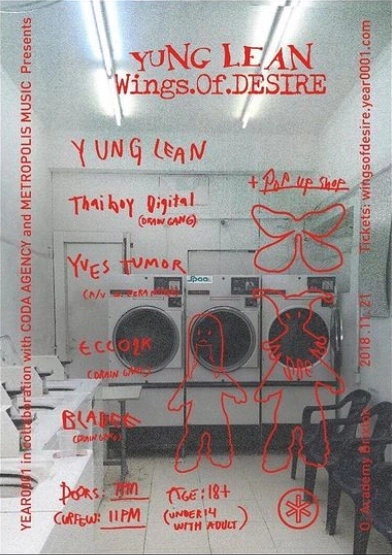 YUNG LEAN
Wings.Of.DESIRE
YUNG LEAN
+ POP UP SHOP
Thaiboy Digital
(DRAIN GANG)
YVES TUMOR
ECCO2K
(DRAIN GANG)
BLADEE
(DRAIN GANG)
DOORS: 7PM
CURFEW: 11PM
AGE: 18+
(UNDER 14
WITH ADULT)
YEAR0001 in collaboration with CODA AGENCY and METROPOLIS MUSIC Presents
O2 Academy 2018.11.21 Tickets: wingsofdesire.year0001.com